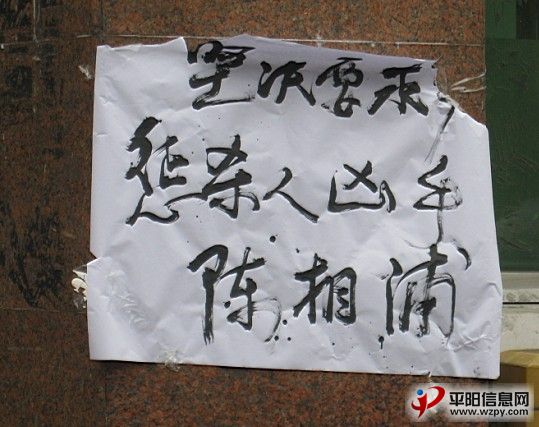 坚决要求
惩杀人凶手
陈相浦
平阳信息网
www.wzpy.com